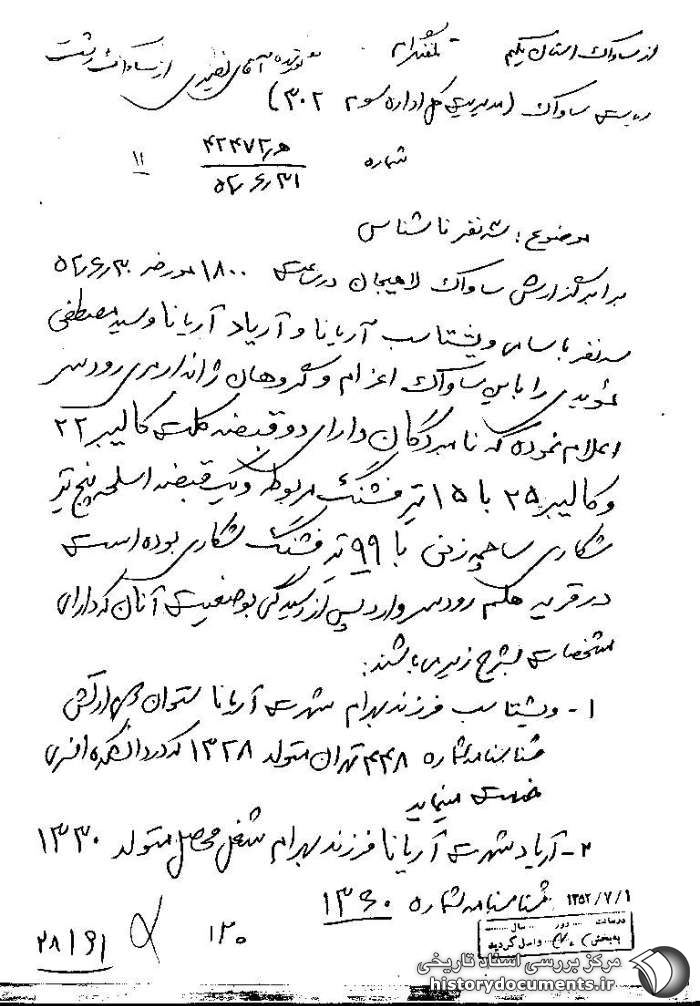 از ساواک استان یکم تلفنگرام گوینده آقای نصیری از ساواک رشت
ریاست ساواک (مدیریت کل اداره سوم ۳۰۲)
شماره ۴۲۴۷۲/ه ۱۱
۵۲/۶/۳۱
موضوع: سه نفر ناشناس
برابر گزارش ساواک لاهیجان در ساعت ۱۸۰۰ مورخه ۵۲/۶/۳۰
سه نفر باسامی ویشتاسب آریانا و آریاد آریانا و سید مصطفی
مؤیدی را باین ساواک اعزام و گروهان ژاندارمری رودسر
اعلام نموده که نامبردگان دارای دو قبضه کلت کالیبر ۲۲
و کالیبر ۲۵ با ۱۵ تیر فشنگ مربوطه و یک قبضه اسلحه پنج تیر
شکاری ساچمه زنی با ۹۹ تیر فشنگ شکاری بوده است
در قریه رودسر وارد پس از رسیدگی بوضعیت آنان که دارای
مشخصات بشرح زیر می باشند:
۱- ویشتاسب فرزند بهرام شهرت آریانا ستوان ارتش
شناسنامه شماره ۴۴۸ تهران متولد ۱۳۲۸ که در دانشکده افسری
خدمت مینماید
۲- آریاد شهرت آریانا فرزند بهرام شغل محصل متولد ۱۳۳۰
شناسنامه شماره ۱۳۶۰
۱۳۵۲/۷/۱
در ساعت روز سال
به بخش واصل گردید
۱۳۰
۲۸۱۶۱
مرکز بررسی اسناد تاریخی
historydocuments.ir